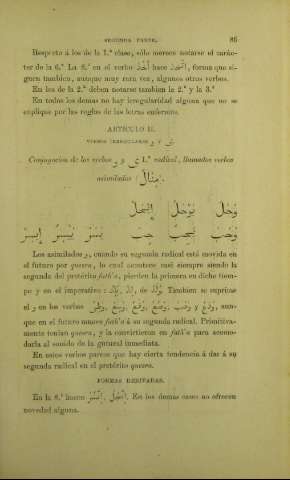 SEGUNDA PARTE. 86
Respecto á los de la 1.ª clase, sólo merece notarse el carác-
ter de la 6.ª La 8.ª en el verbo أَخَذَ hace إِتَّخَذَ, forma que si-
guen tambien, aunque muy rara vez, algunos otros verbos.
En los de la 2.ª deben notarse tambien la 2.ª y la 3.ª
En todos los demas no hay irregularidad alguna que no se
explique por las reglas de las letras enfermas.
ARTÍCULO II.
VERBOS IRREGULARES و Y ى
Conjugacion de los verbos و ó ى 1.ª radical, llamados verbos
asimilados
وَجَلَ يَوْجَلُ إِيجَلْ
وَجَبَ يَجِبُ جِبْ يَسَرَ يَيْسِرُ إِيسِرْ
Los asimilados و, cuando su segunda radical está movida en
el futuro por quesra, lo cual acontece casi siempre siendo la
segunda del pretérito fath'a, pierden la primera en dicho tiem-
po y en el imperativo: يَلِدُ, لِدْ, de وَلَدَ. Tambien se suprime
el و en los verbos
que en el futuro mueve fath'a á su segunda radical. Primitiva-
mente tenian quesra, y la convirtieron en fath'a para acomo-
darla al sonido de la gutural inmediata.
En estos verbos parece que hay cierta tendencia á dar á su
segunda radical en el pretérito quesra.
FORMAS DERIVADAS.
En la 8.ª hacen إِتَّسَرَ, إِتَّجَلَ. En los demas casos no ofrecen
novedad alguna.